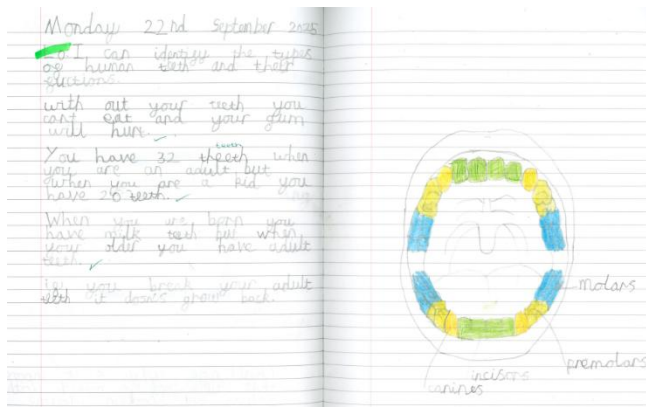 Monday 22nd September 2025
L.o. I can identify the types
of human teeth and their
fuctions.
with out your teeth you
cant eat and your gum
will hurt.
teeth
You have 32 theeth when
you are an adult but
when you are a kid you
have 20 teeth.
When you are born you
have milk teeth but when
your older you have adult
teeth.
if you break your adult
teth it dosn't grow back.
molars
premolars
incisors
canines